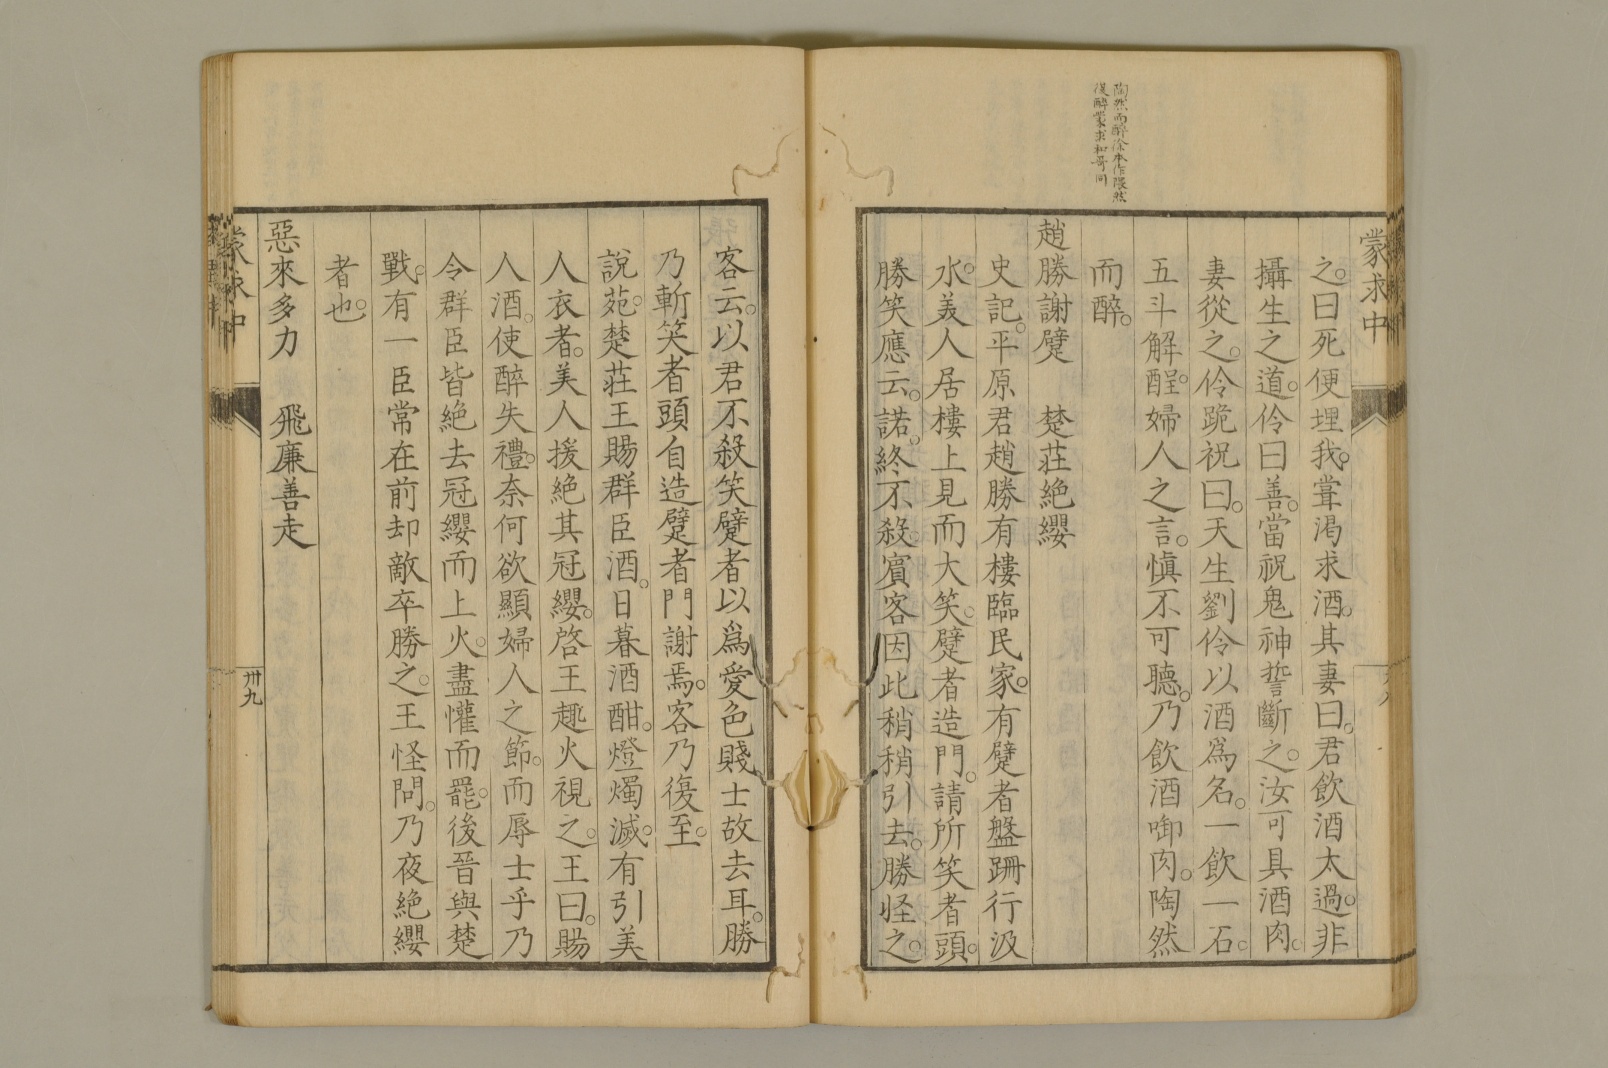 陶然而醉徐本作隗然
復醉蒙求和哥同
蒙求中
之。曰死便埋我。甞渴求酒。其妻曰。君飲酒太過。非
攝生之道。伶曰善。當祝鬼神誓斷之。汝可具酒肉。
妻從之。伶跪祝曰。天生劉伶以酒為名。一飲一石。
五斗解酲。婦人之言。慎不可聽。乃飲酒啣肉。陶然
而醉。
趙勝謝躄　楚莊絶纓
史記。平原君趙勝有樓臨民家。有躄者盤跚行汲
水。美人居樓上見而大笑。躄者造門。請所笑者頭。
勝笑應云。諾。終不殺。賔客因此稍稍引去。勝怪之。
客云。以君不殺笑躄者以為愛色賤士故去耳。勝
乃斬笑者頭自造躄者門謝焉。客乃復至。
說苑。楚莊王賜群臣酒。日暮酒酣。燈燭滅。有引美
人衣者。美人援絶其冠纓。啓王趣火視之。王曰。賜
人酒。使醉失禮。奈何欲顯婦人之節。而辱士乎乃
令群臣皆絶去冠纓而上火。盡懽而罷。後晉與楚
戰。有一臣常在前却敵卒勝之。王怪問。乃夜絶纓
者也。
惡來多力　飛廉善走
蒙求中
卅九